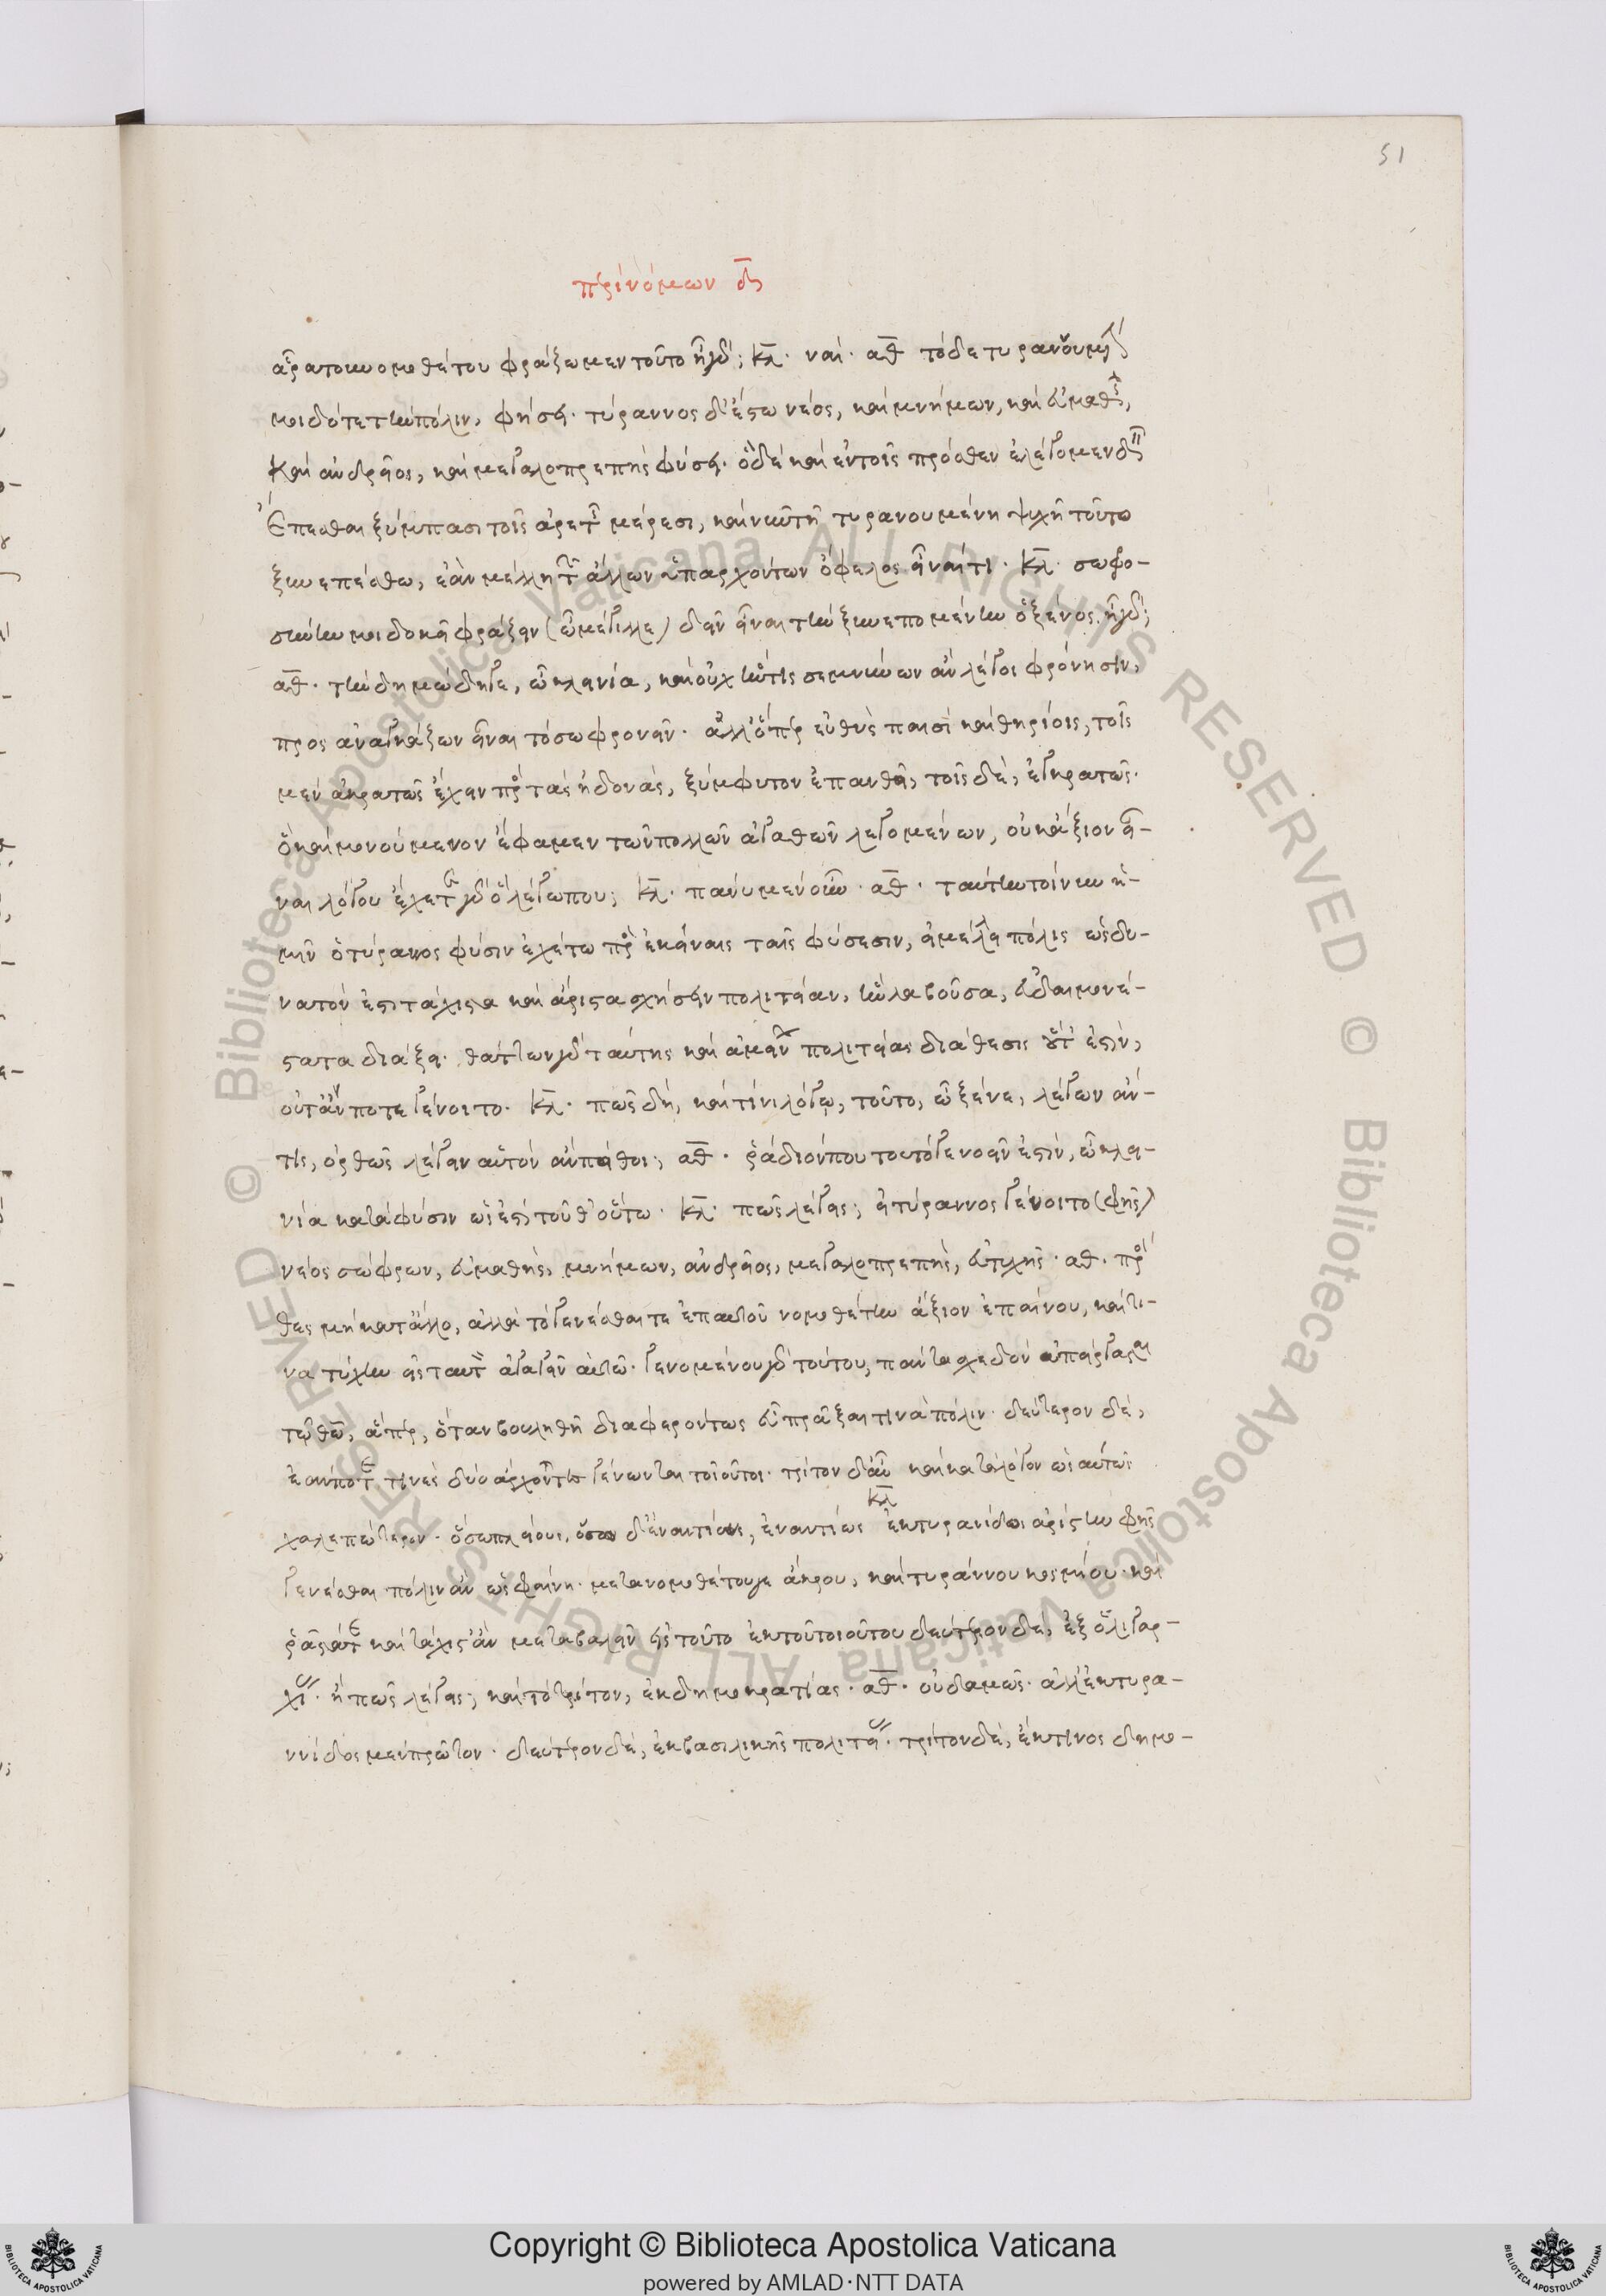 51
περὶ νόμων δ̅
ἆρα τὸν νομοθέτου φράξωμεν τοῦτο ἢ γάρ; κλ. ναί. αθ τόδε τυρανουμένην
μοι δότε τὴν πόλιν, φήσει. τύραννος δ' ἔστω νέος, καὶ μνήμων, καὶ εὐμαθὴς,
καὶ ἀνδρεῖος, καὶ μεγαλοπρεπὴς φύσει. ὃ δὲ καὶ ἐν τοῖς πρόσθεν ἐλέγομεν δεῖν
ἕπεσθαι ξύμπασι τοῖς ἀρετῆς μέρεσι, καὶ νῦν τῇ τυρανουμένη ψυχῇ τοῦτο
ξυνεπέσθω, ἐὰν μέλλῃ τῶν ἄλλων ὑπαρχόντων ὄφελος εἶναί τι. κλ. σωφρο-
σύνην μοι δοκεῖ φράζειν (ὦ μέγιλλε) δεῖν εἶναι τὴν ξυνεπομένην ὁ ξένος. ἢ γάρ;
αθ. τὴν δημώδη γε, ὦ κλεινία, καὶ οὐχ ἥν τις σεμνύνων ἂν λέγοι φρόνησιν,
προσαναγκάζων εἶναι τὸ σωφρονεῖν. ἀλλ' ὅπερ εὐθὺς παισὶ καὶ θηρίοις, τοῖς
μὲν ἀκρατῶς ἔχειν πρὸς τὰς ἡδονάς, ξύμφυτον ἐπανθεῖ, τοῖς δὲ, ἐγκρατῶς.
ὃ καὶ μονούμενον ἔφαμεν τῶν πολλῶν ἀγαθῶν λεγομένων, οὐκ ἄξιον εἶ-
ναι λόγου ἔχετε γὰρ ὃ λέγω που; κλ. πάνυ μὲν οὖν. αθ. ταύτην τοίνυν ἡ-
μῖν ὁ τύρανος φύσιν ἐχέτω πρὸς ἐκείναις ταῖς φύσεσιν, εἰ μέλλει πόλις ὡς δυ-
νατόν ἐστι τάχιστα καὶ ἄριστα σχήσειν πολιτείαν, ἣν λαβοῦσα, εὐδαιμονέ-
στατα διάξει. θάττων γὰρ ταύτης καὶ ἀμείνων πολιτείας διάθεσις οὔτ' ἐστὶν,
οὔτ' ἄν ποτε γένοιτο. κλ. πῶς δὴ, καὶ τίνι λόγῳ, τοῦτο, ὦ ξένε, λέγων ἄν-
τις, ὀρθῶς λέγειν αὑτὸν ἂν πείθοι; αθ. ῥάδιόν που τοῦτό γε νοεῖν ἐστὶν, ὦ κλει-
νία κατὰ φύσιν ὡς ἐστὶ τοῦθ' οὕτω. κλ. πῶς λέγεις; εἰ τύραννος γένοιτο (φῂς)
νέος σώφρων, εὐμαθὴς, μνήμων, ἀνδρεῖος, μεγαλοπρεπὴς, εὐτυχής. αθ. πρόσ
θες μὴ κατ' ἄλλο, ἀλλὰ τὸ γενέσθαι τε ἐπ' αὐτοῦ νομοθέτην ἄξιον ἐπαίνου, καί τι-
να τύχην εἰς ταυτὸν ἀγαγεῖν αὐτῷ. γενομένου γὰρ τούτου, πάντα σχεδὸν ἀπείργασται
τῷ θεῷ, ἅπερ, ὅταν βουληθῇ διαφερόντως εὖ πρᾶξαι τινὰ πόλιν. δεύτερον δὲ,
ἐάν ποτέ τινες δύο ἄρχοντες γένωνται τοιοῦτοι. τρίτον δ' αὖ καὶ κατὰ λόγον ὡσαύτως
χαλεπώτερον. ὅσῳ πλείους, ὅσω δ' ἐναντίως, ἐναντίως κλ ἐκ τυρανίδος ἀρίστην φῂς
γενέσθαι πόλιν ἂν ὡς φαίνη. μετὰ νομοθέτου γε ἄκρου, καὶ τυράννου κοσμίου. καὶ
ῥᾷστά τε καὶ τάχιστ' ἂν μεταβαλεῖν εἰς τοῦτο ἐκ τοῦ τοιούτου δεύτερον δὲ, ἐξ ὀλιγαρ-
χίας. ἢ πῶς λέγεις; καὶ τὸ τρίτον, ἐκ δημοκρατίας. αθ. οὐδαμῶς. ἀλλ' ἐκ τυρα-
ννίδος μὲν πρῶτον. δεύτερον δὲ, ἐκ βασιλικῆς πολιτείας. τρίτον δὲ, ἔκ τινος δημο-
© Biblioteca Apostolica Vaticana ALL RIGHTS RESERVED © Biblioteca Apostolica Vaticana ALL RIGHTS RESERVED
Copyright © Biblioteca Apostolica Vaticana
powered by AMLAD·NTT DATA
BIBLIOTECA APOSTOLICA VATICANA
BIBLIOTECA APOSTOLICA VATICANA